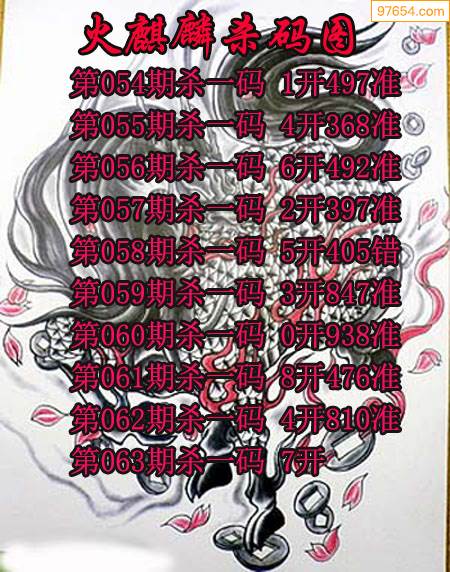 97654.com
火麒麟杀码图
第054期杀一码 1开497准
第055期杀一码 4开368准
第056期杀一码 6开492准
第057期杀一码 2开397准
第058期杀一码 5开405错
第059期杀一码 3开847准
第060期杀一码 0开938准
第061期杀一码 8开476准
第062期杀一码 4开810准
第063期杀一码 7开